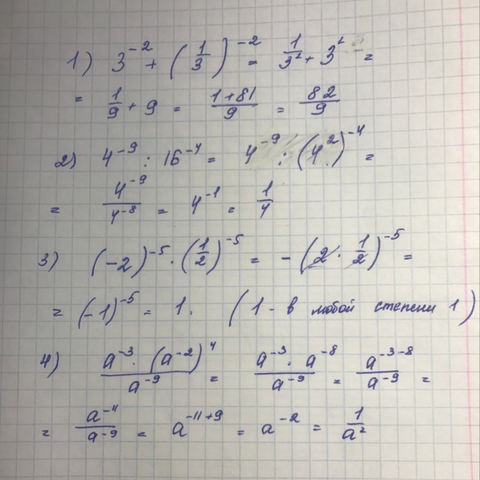 1) 3⁻² + (1/3)⁻² = 1/3² + 3² =
= 1/9 + 9 = (1+81)/9 = 82/9
2) 4⁻⁹ : 16⁻⁴ = 4⁻⁹ : (4²)⁻⁴ =
= 4⁻⁹/4⁻⁸ = 4⁻¹ = 1/4
3) (-2)⁻⁵ · (1/2)⁻⁵ = -(2 · 1/2)⁻⁵ =
= (-1)⁻⁵ = 1. (1 - в любой степени 1)
4) a⁻³ · (a⁻²)⁴/a⁻⁹ = a⁻³ · a⁻⁸/a⁻⁹ = a⁻³⁻⁸/a⁻⁹ =
= a⁻⁴/a⁻⁹ = a⁻¹¹⁺⁹ = a⁻² = 1/a²